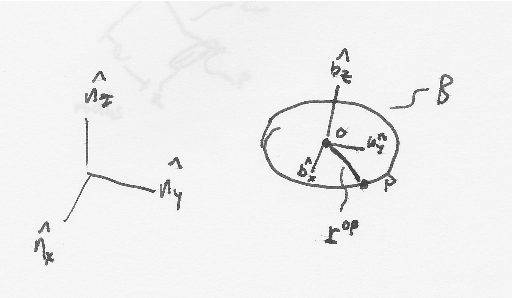 n̂z
n̂y
n̂x
b̂z
B
O
b̂y
b̂x
P
r^OP